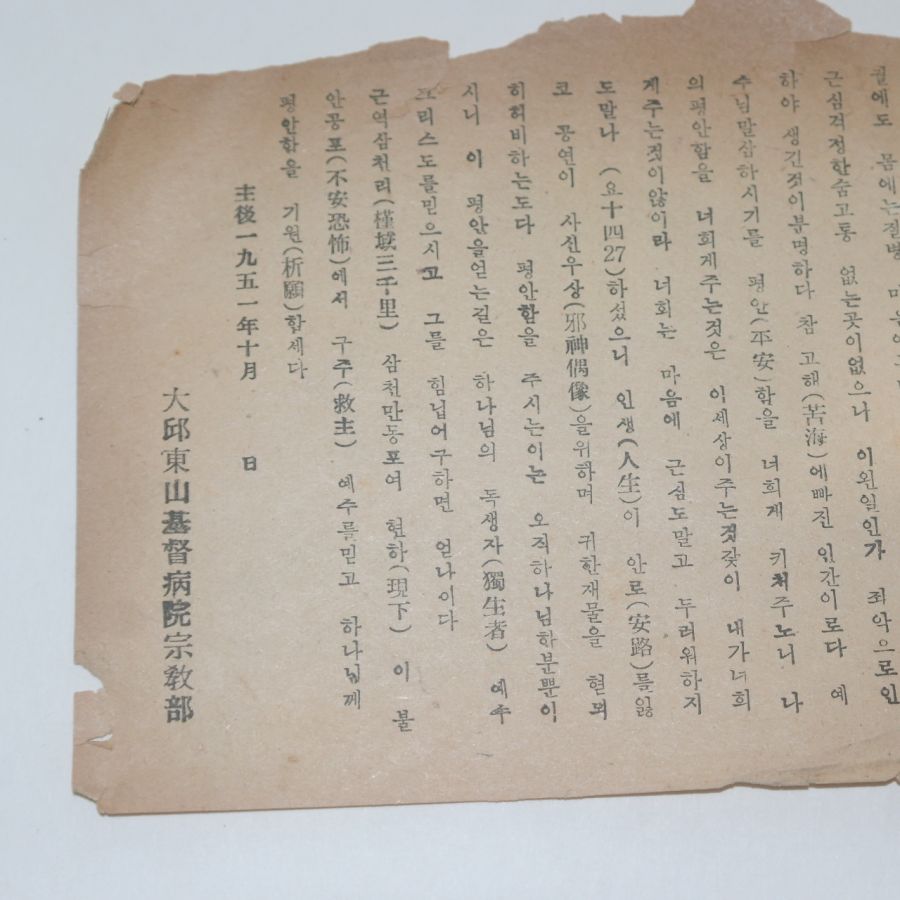 에도 몸에는질병
근심걱정한숨고통 없는곳이없으나 이왼일인가 죄악으로인
하야 생긴것이분명하다 참 고해(苦海)에빠진 인간이로다 예
수님말삼하시기를 평안(平安)함을 너희게 키처주노니 나
의평안함을 너희게주는것은 이세상이주는것갗이 내가너희
게주는것이않이라 너희는 마음에 근심도말고 두러워하지
도말나 (요十四27)하섰으니 인생(人生)이 안로(安路)를잃
코 공연이 사신우상(邪神偶像)을위하며 귀한재물을 헌되
히허비하는도다 평안함을 주시는이는 오직하나님하분뿐이
시니 이 평안을얻는길은 하나님의 독생자(獨生者) 예수
그리스도를믿으시고 그를 힘닙어구하면 얻나이다
근역삼천리(槿域三千里) 삼천만동포여 현하(現下) 이 불
안공포(不安恐怖)에서 구주(救主) 예수를믿고 하나님께
평안함을 기원(祈願)합세다
主後一九五一年十月 日
大邱東山基督病院宗教部